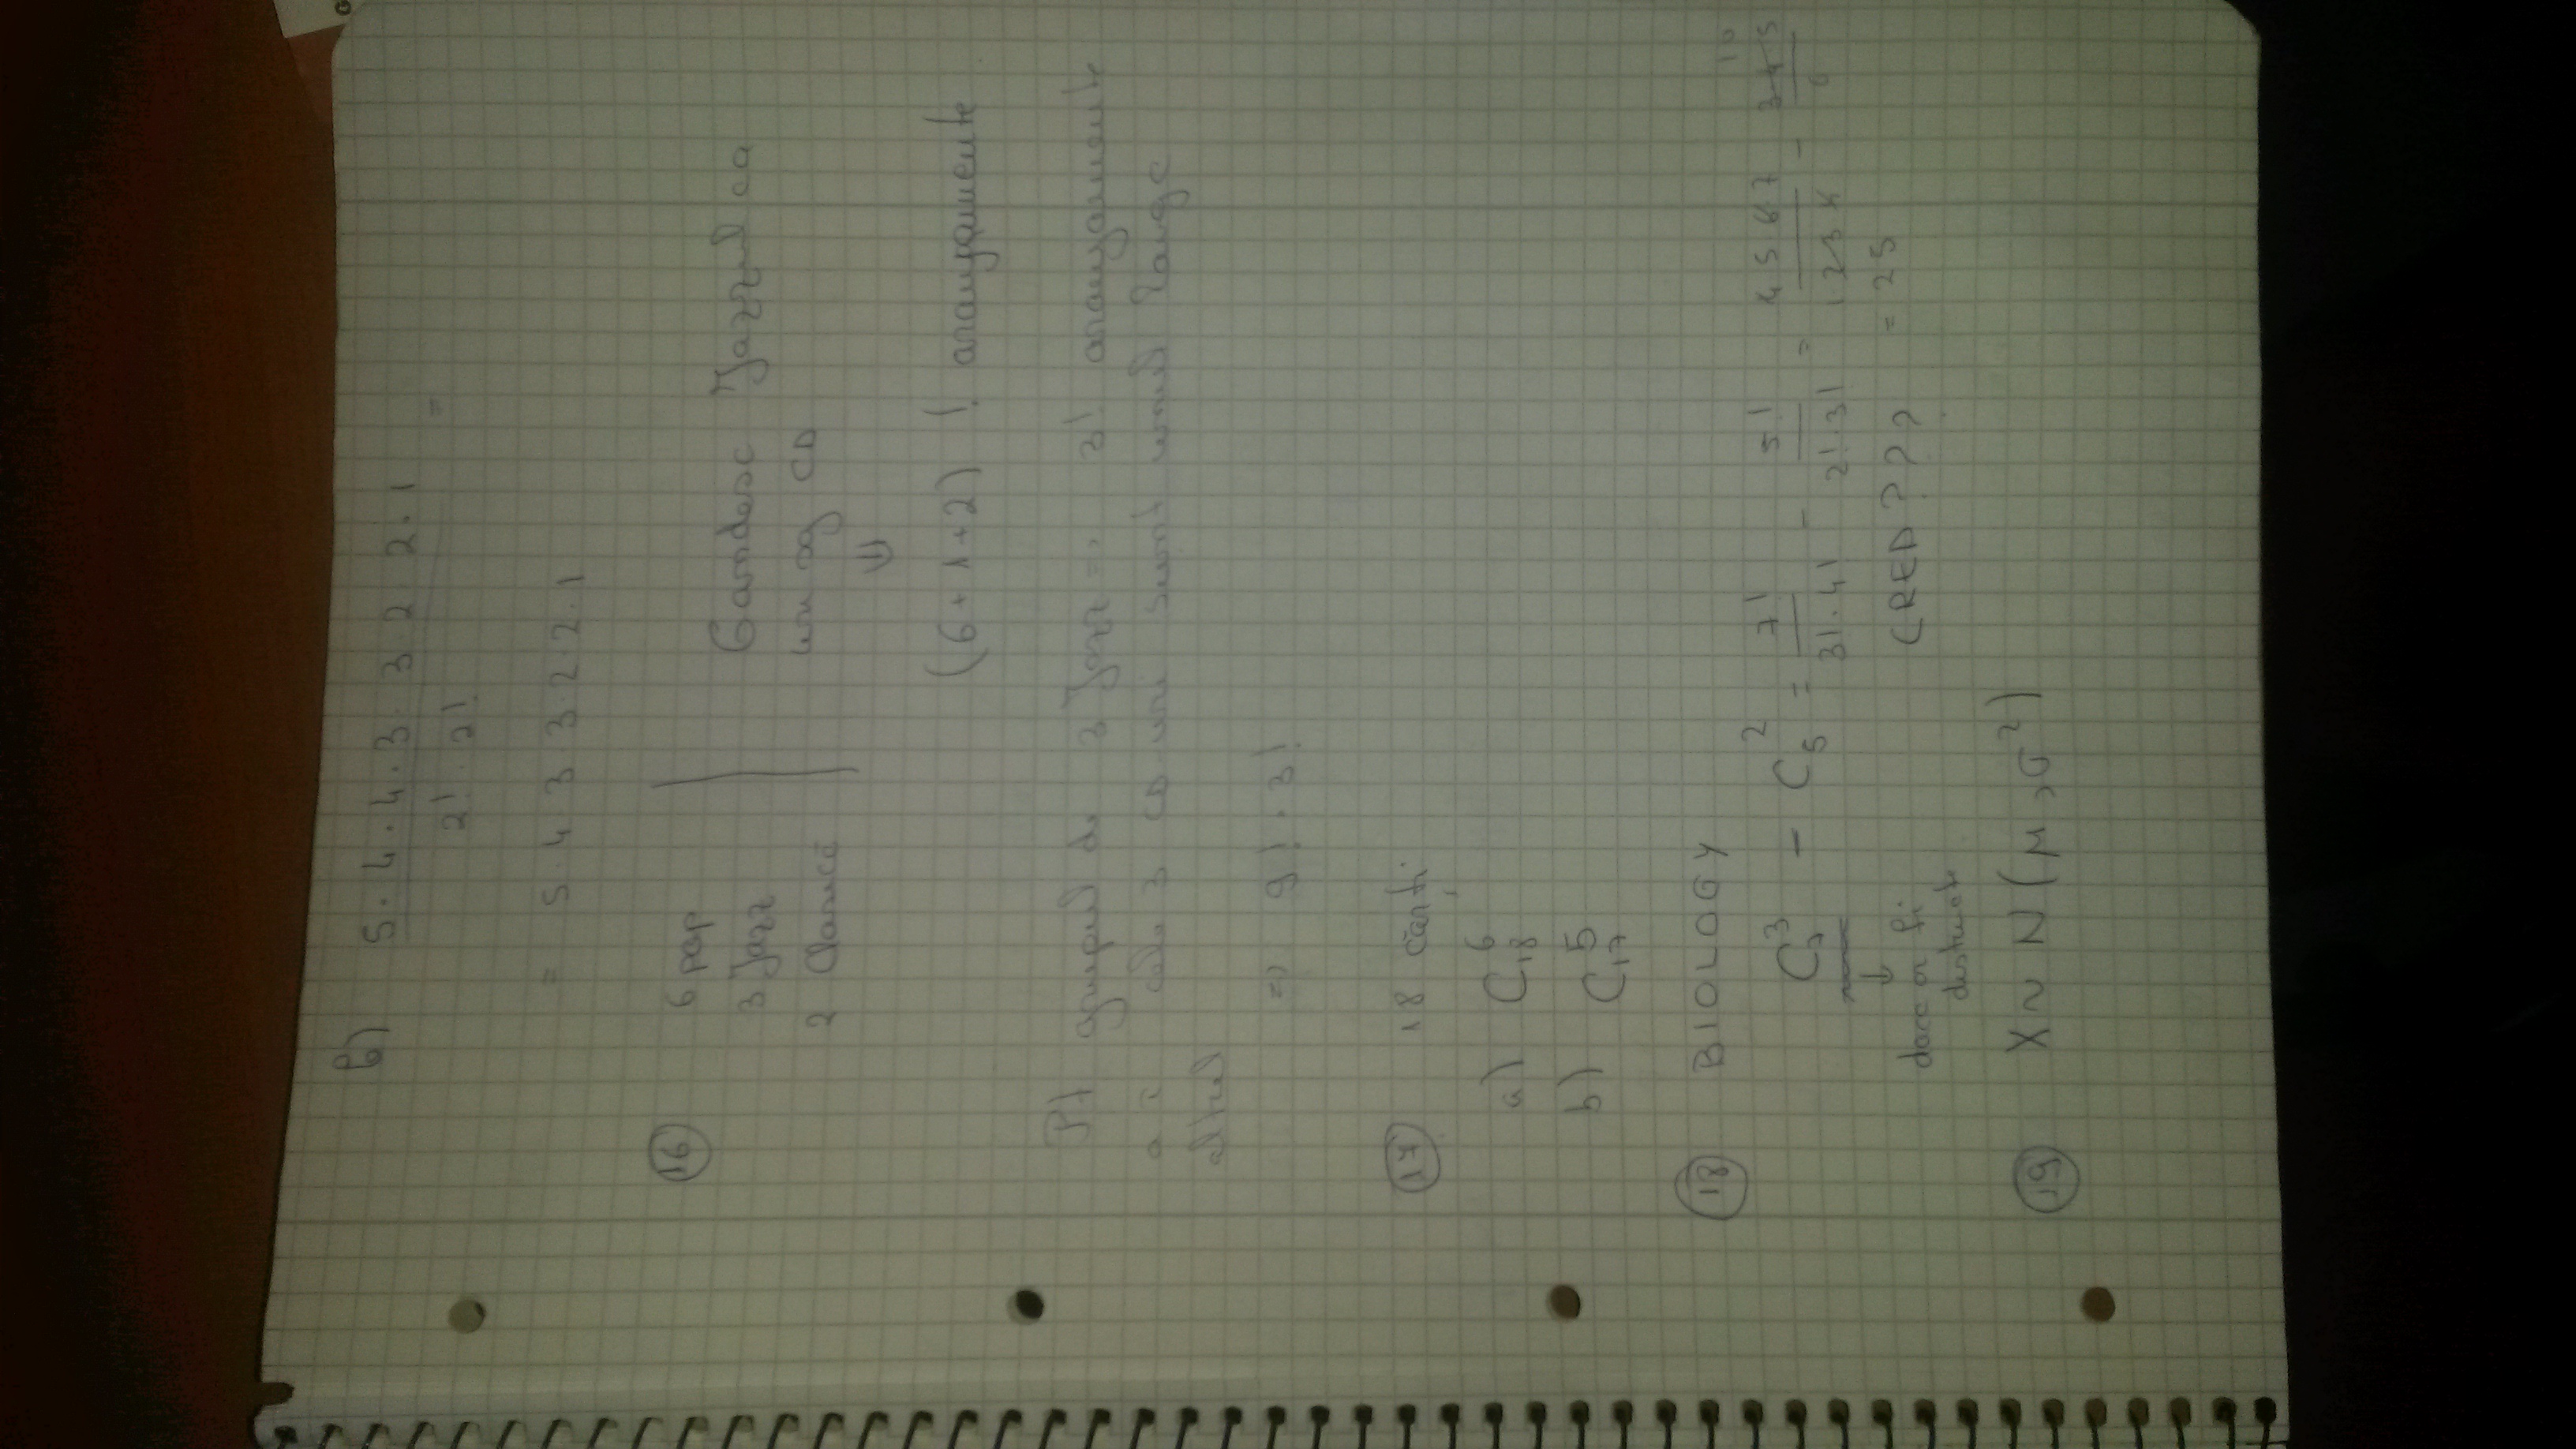 b) 5·4·4·3·3·2·2·1 =
2!·2!
= 5·4·3·3·2·2·1
16 6 pop
3 Jazz
2 Dance
Gandesc Jazzul ca
un sg CD
⇓
(6+1+2)! aranjamente
Pt grupul de 3 Jazz => 3! aranjamente
a î cele 3 CD uri sunt unul langa
altul
=> 9!·3!
17 18 cărți
a) C₁₈⁶
b) C₁₇⁵
18 BIOLOGY
C₇³ - C₅² = 7!/3!·4! - 5!/2!·3! =
= 25
↓
(RED???
daca or fi
distincte
19 X ~ N(μ, σ²)